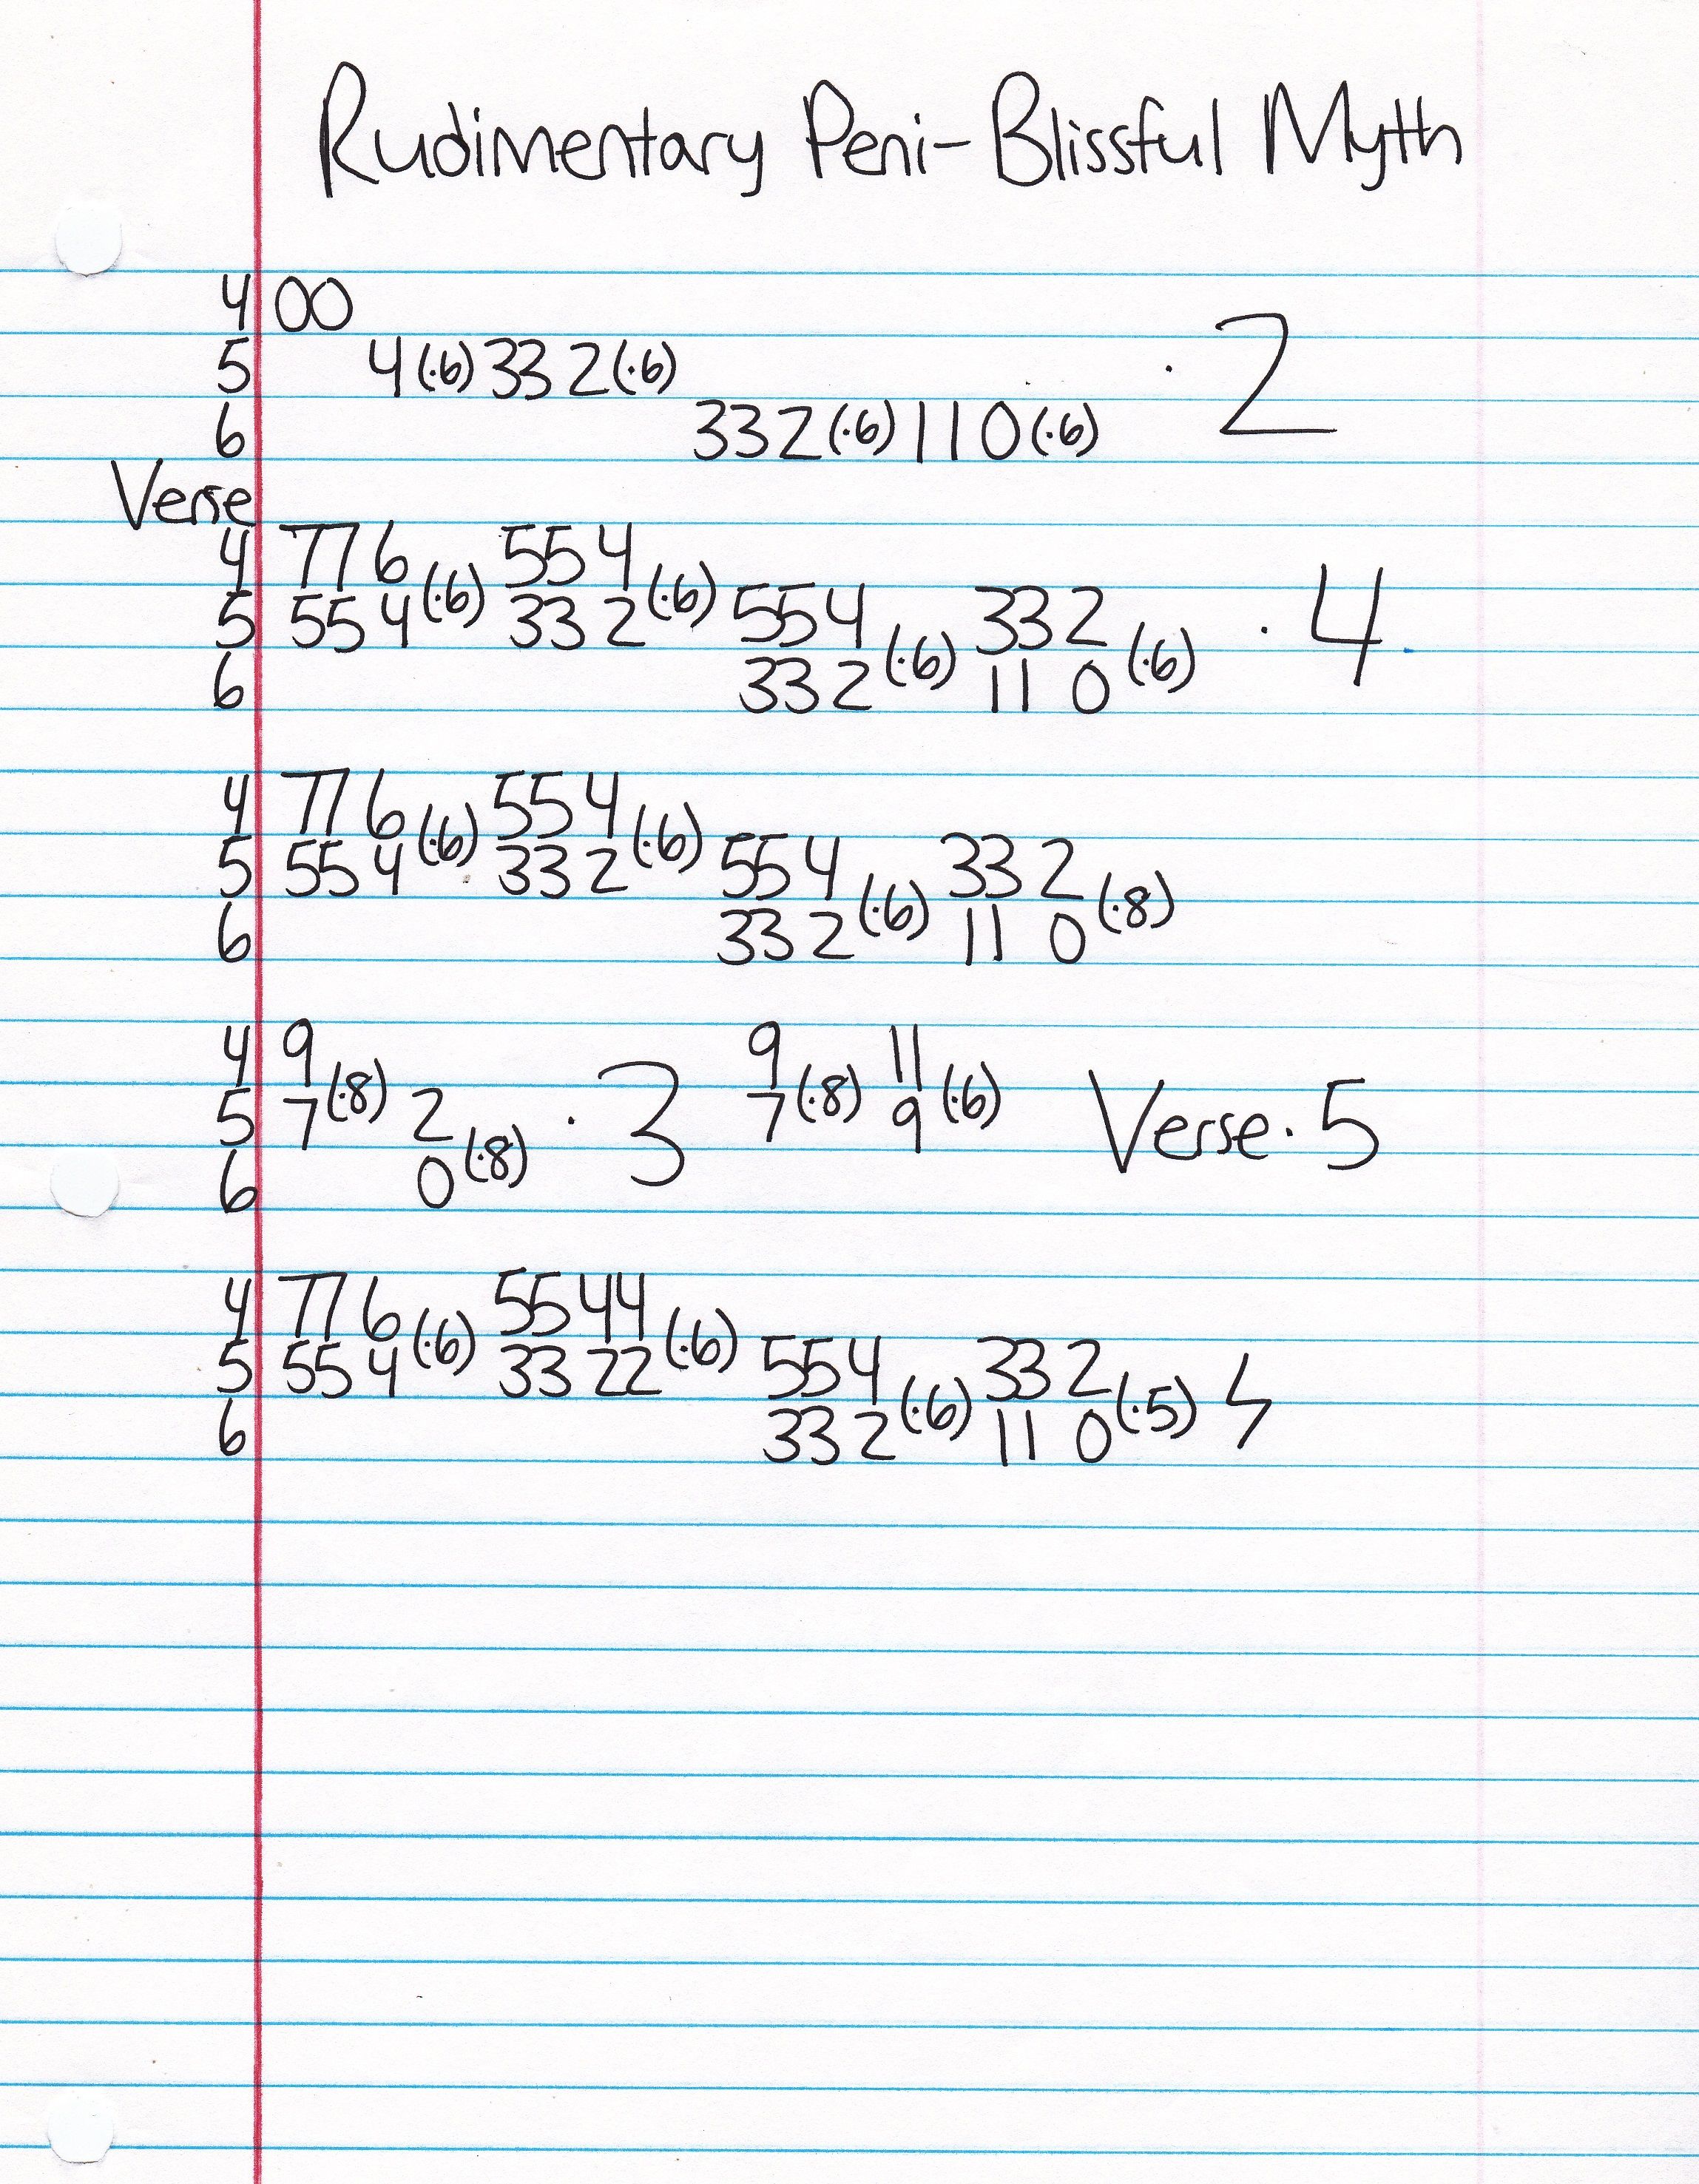 Rudimentary Peni-Blissful Myth
4 00
5 4(·6) 33 2(·6)
6 332(·6) 110(·6) · 2
Verse
4 776 554
5 554(·6) 332(·6) 554 332 · 4
6 332(·6) 110(·6)
4 776 554
5 554(·6) 332(·6) 554 332
6 332(·6) 110(·8)
4 9 9 11
5 7(·8) 2 · 3 7(·8) 9(·6) Verse·5
6 0(·8)
4 776 5544
5 554(·6) 3322(·6) 554 332
6 332(·6) 110(·5)